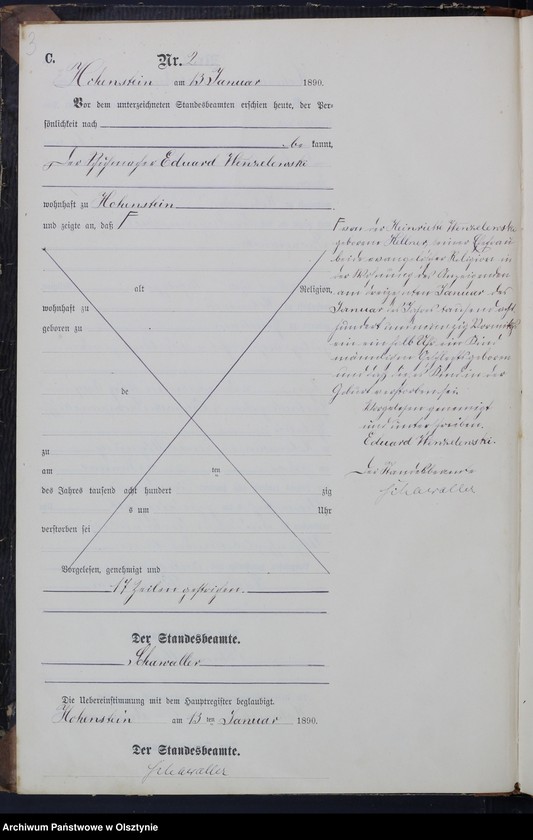 3
C.
Nr. 2
Hohenstein am 13 Januar 1890.
Vor dem unterzeichneten Standesbeamten erschien heute, der Per-
sönlichkeit nach
be kannt,
der Eduard Wenzelewski
wohnhaft zu Hohenstein
und zeigte an, daß Γ
alt Religion,
wohnhaft zu
geboren zu
de
zu
am ten
des Jahres tausend acht hundert zig
s um Uhr
verstorben sei
Vorgelesen, genehmigt und
17 Zeilen gestrichen.
Der Standesbeamte.
Schawaller
Die Uebereinstimmung mit dem Hauptregister beglaubigt.
Hohenstein am 13 ten Januar 1890.
Der Standesbeamte.
Schawaller
Γ von der Heinriette Wenzelewski
geborene seiner Ehefrau
beide evangelischer Religion in
der Wohnung des Anzeigenden
am Januar des
Januar des Jahres tausend acht
hundert und neunzig Vormittags
um ein halb Uhr ein Kind
männlichen Geschlechts geboren
und daß das Kind in der
Geburt verstorben sei.
Vorgelesen genehmigt
und unterschrieben.
Eduard Wenzelewski.
Der Standesbeamte
Schawaller
Archiwum Państwowe w Olsztynie